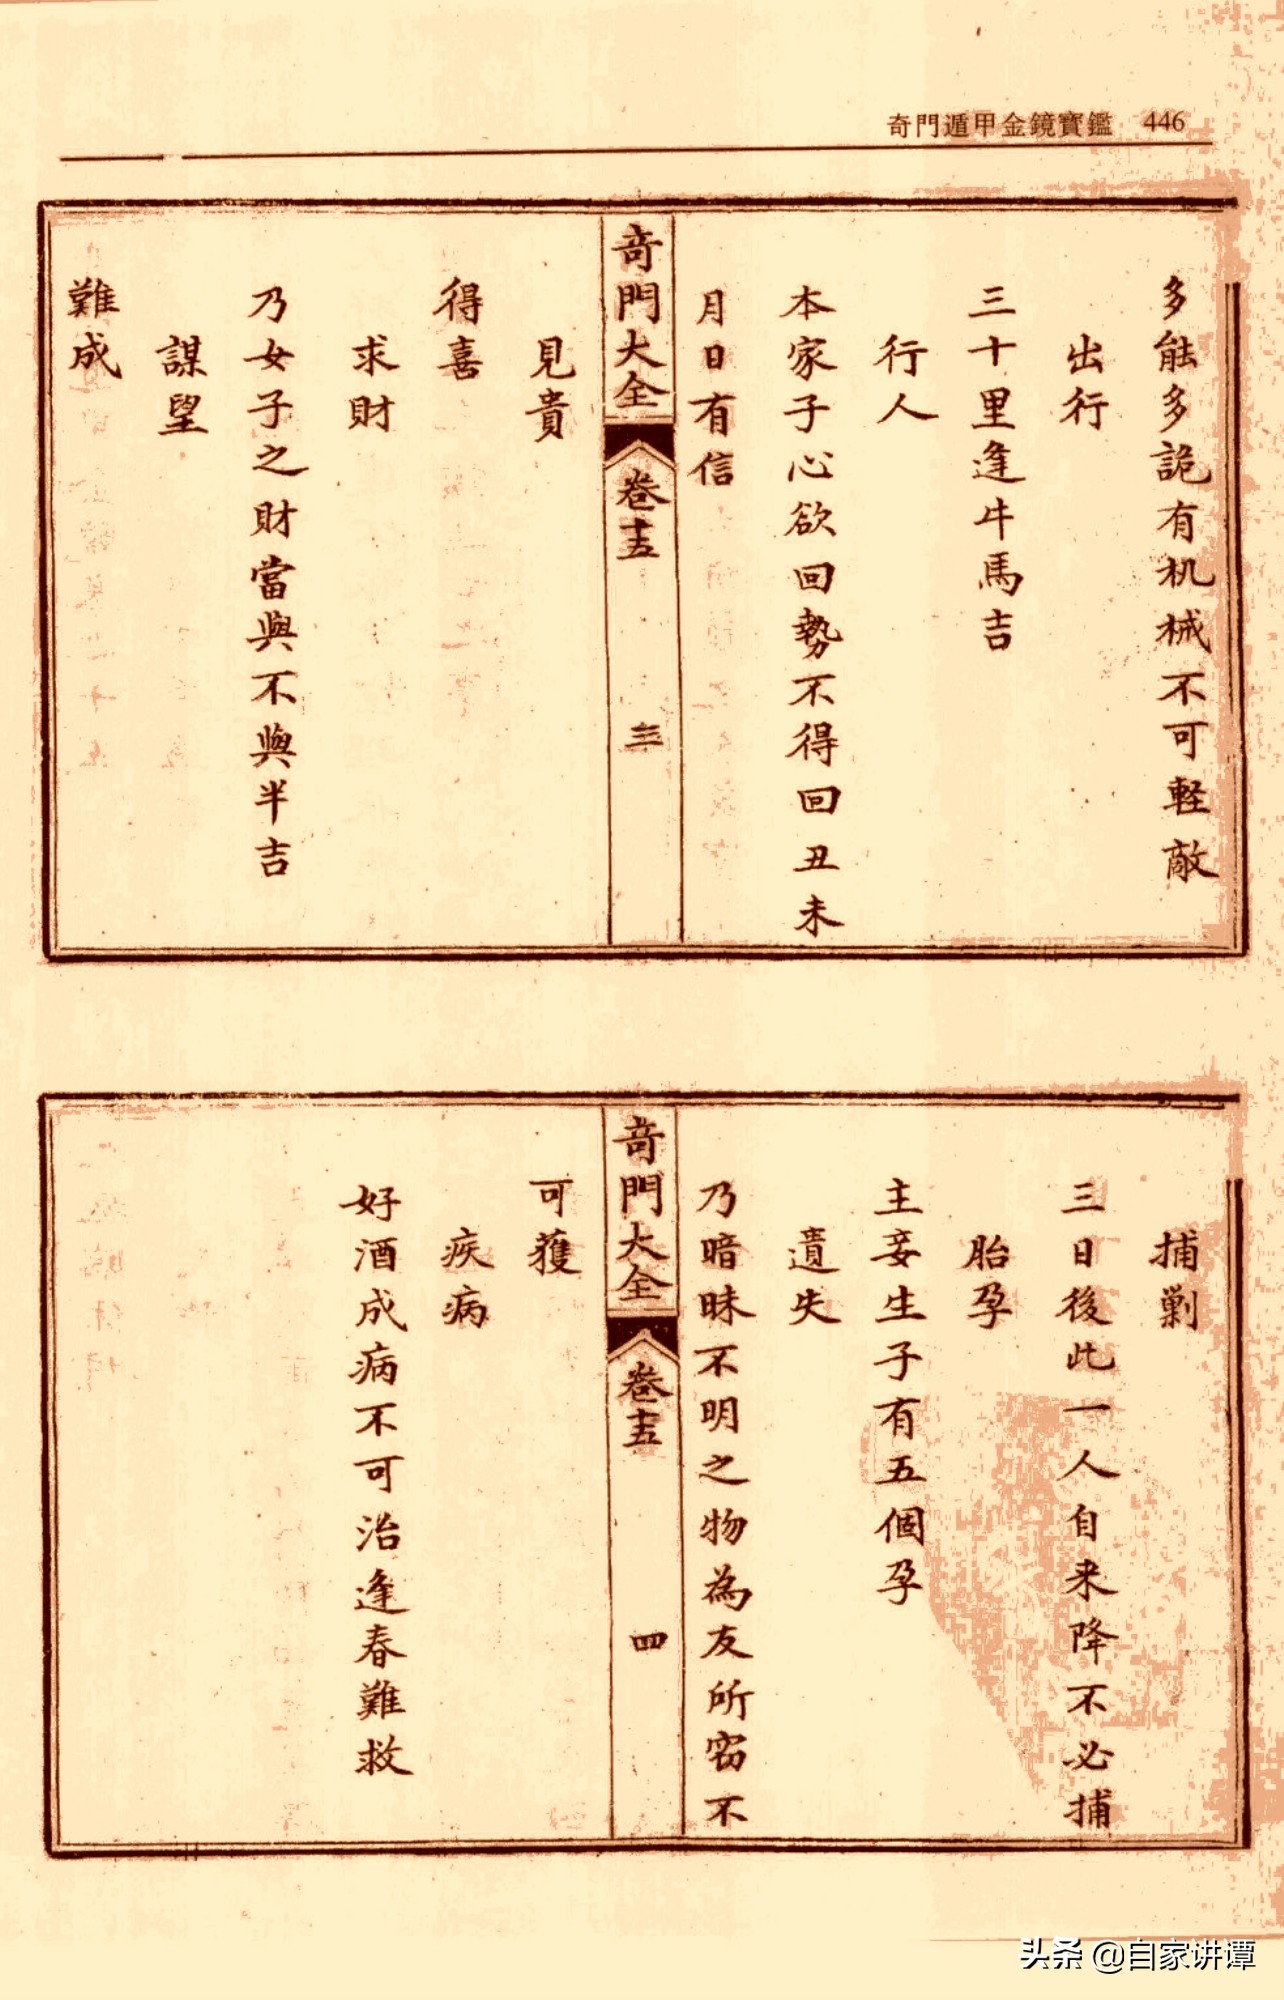 奇門遁甲金鏡寶鑑 446
多能多詭有机械不可軽敵
出行
三十里逢牛馬吉
行人
本家子心欲回勢不得回丑未
月日有信
奇門大全 卷十五 三
見貴
得喜
求財
乃女子之財當與不與半吉
謀望
難成
捕剿
三日後此一人自来降不必捕
胎孕
主妾生子有五個孕
遺失
乃暗昧不明之物為友所窃不
奇門大全 卷十五 四
可獲
疾病
好酒成病不可治逢春難救
头条 @自家讲谭